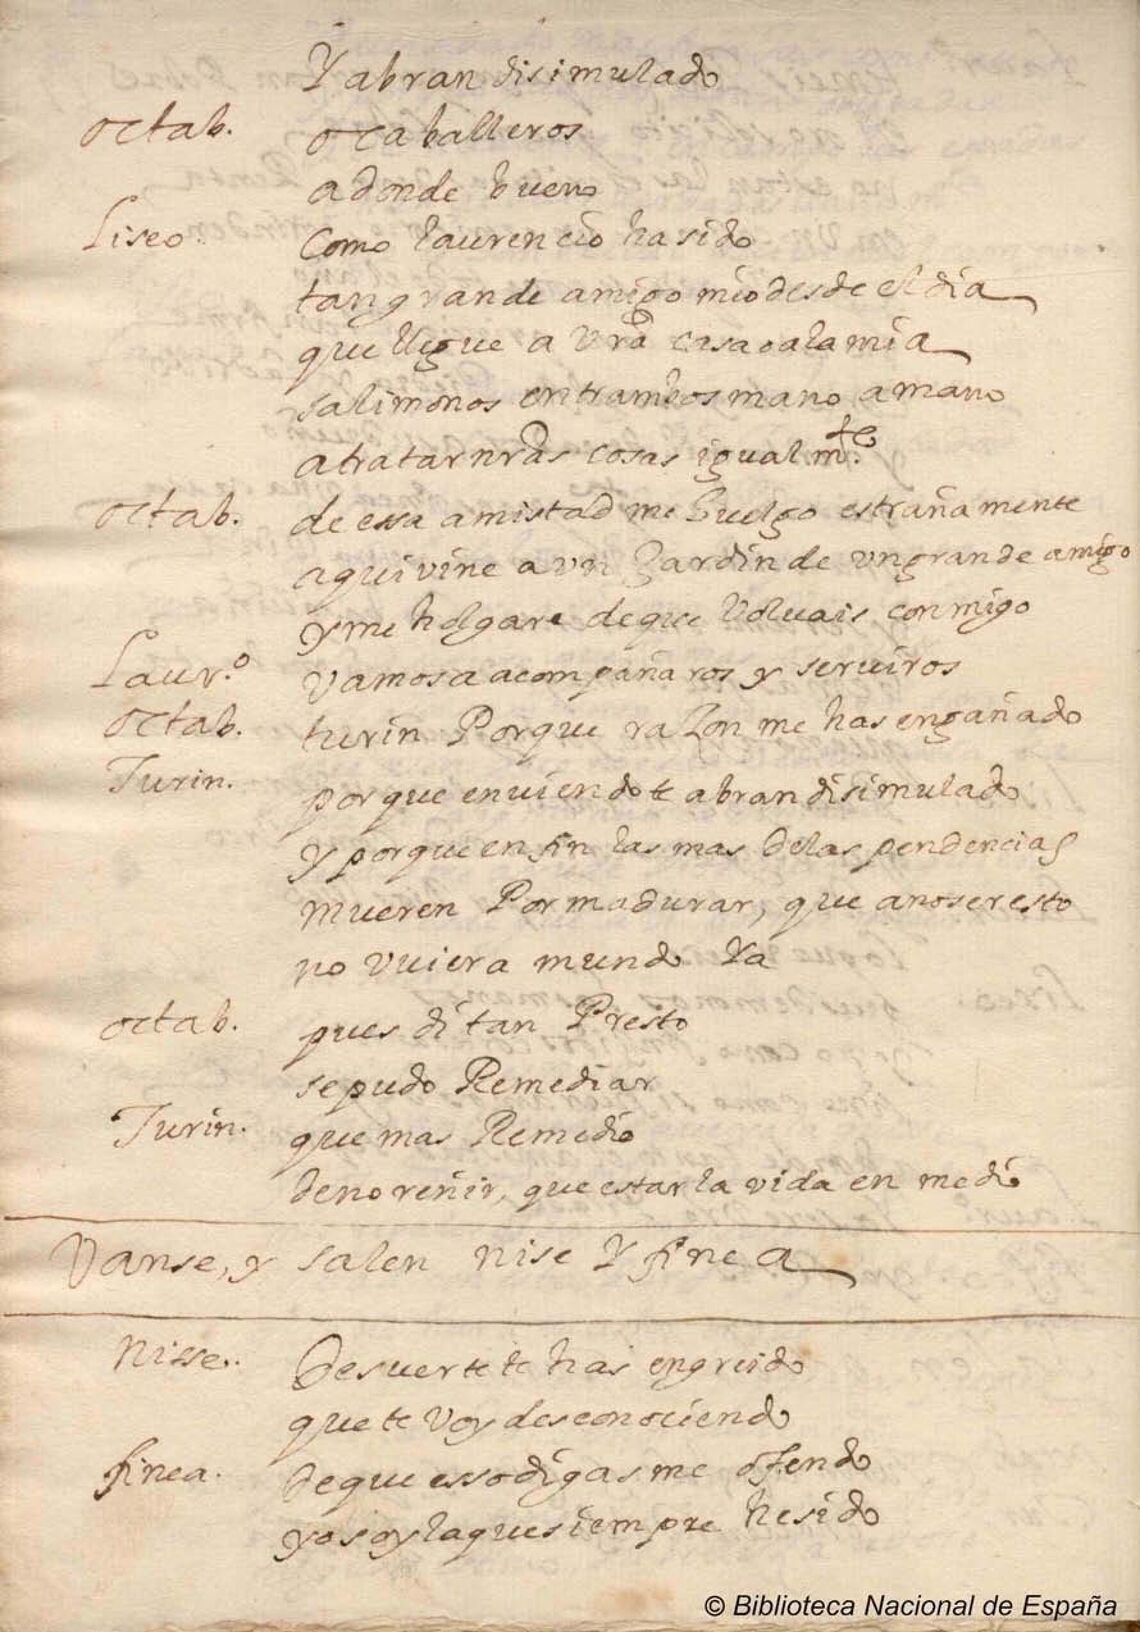 Y abran disimulado
octab. o caballeros
adonde bueno
Liseo. Como laurencio ha sido
tan grande amigo mio desde el dia
que llegue a vrã casa o a la mia
salimonos entrambos mano a mano
a tratar nrãs cosas igual mte.
octab. de essa amistad me huelgo estrañamente
aqui vine a vn Jardin de vn grande amigo
y me holgare de que voluais conmigo
Laur.o vamos a acompañaros y seruiros
octab. turin Porque raZon me has engañado
Turin. porque en viendote abran disimulado
y porque en fin las mas de las pendencias
mueren Por madurar, que a no ser esto
no vuiera mundo Ya
octab. pues di tan Presto
se pudo Remediar
Turin. que mas Remedio
de no reñir, que estar la vida en medio
Vanse, y salen nise Y finea
Nisse. De suerte te has engreido
que te voy desconociendo
finea. De que esso digas me ofendo
yo soy la que siempre he sido
© Biblioteca Nacional de España